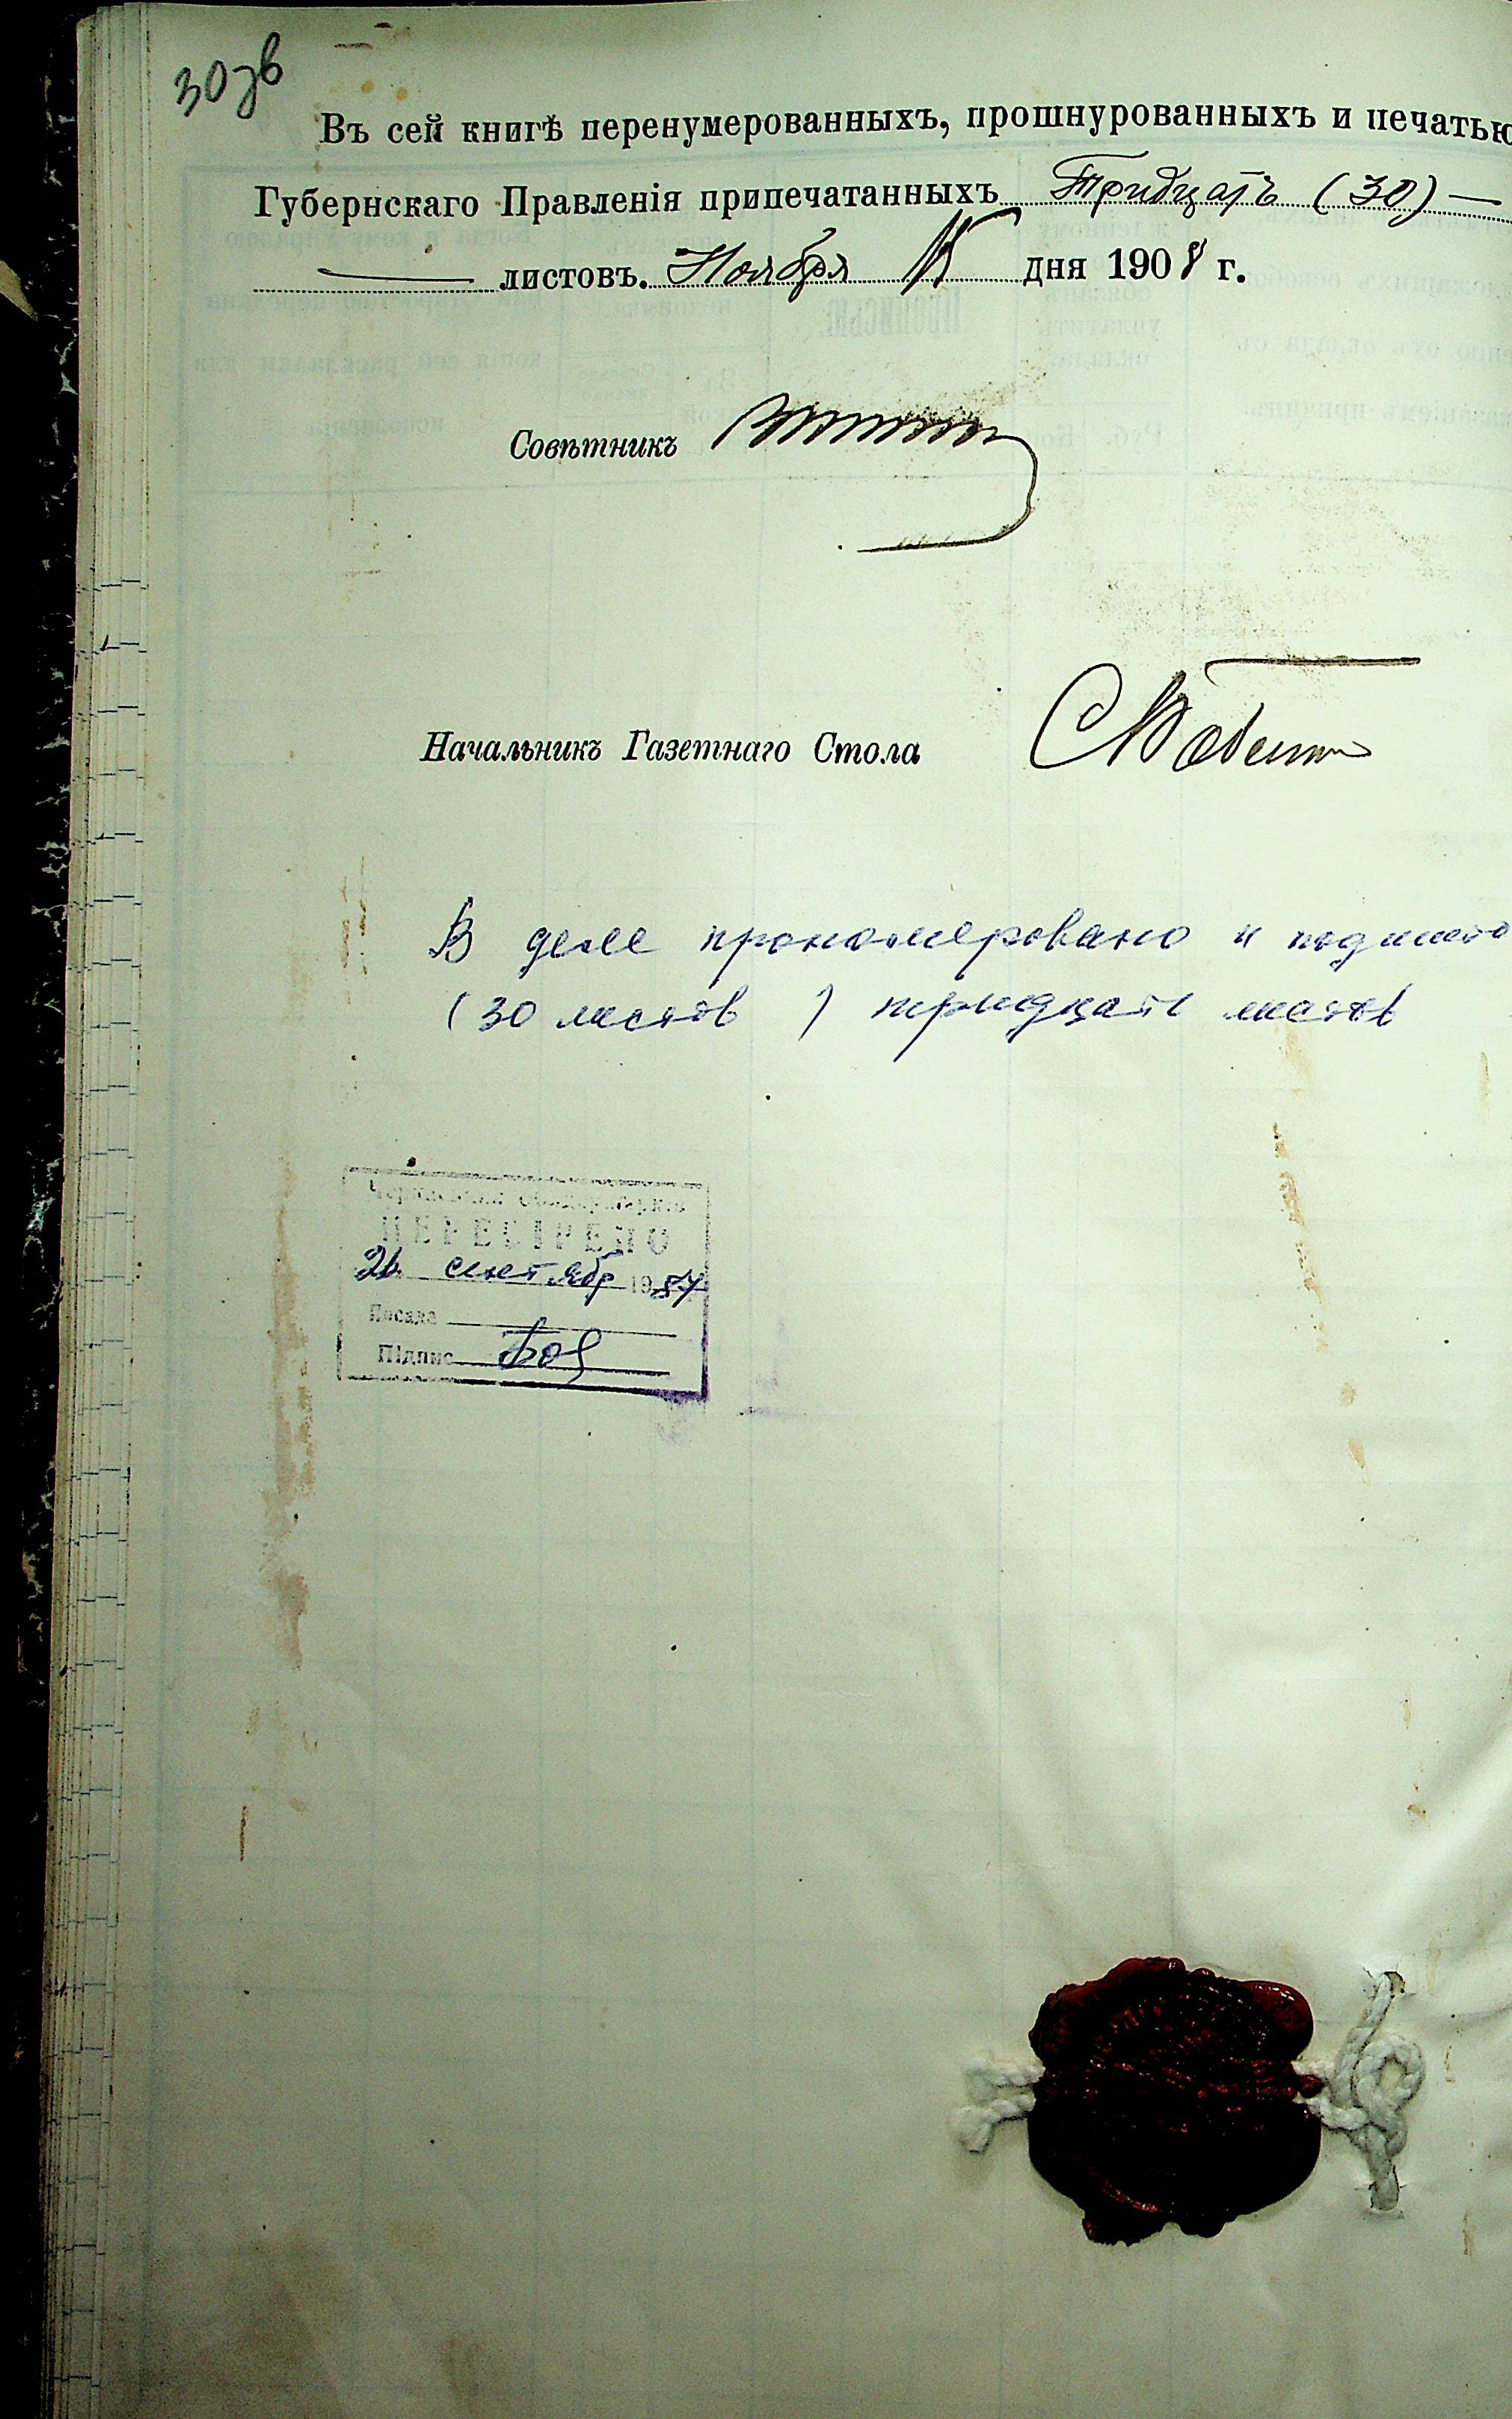 30зв
Въ сей книгѣ перенумерованныхъ, прошнурованныхъ и печатью
Губернскаго Правленія припечатанныхъ Тридцать (30) —
— листовъ. Ноября 15 дня 1908 г.
Совѣтникъ
Начальникъ Газетнаго Стола
В деле прономеровано и подшито
(30 листов ) тридцать листов
ПЕРЕВІРЕНО
26 сентябр 1984
Посада
Підпис